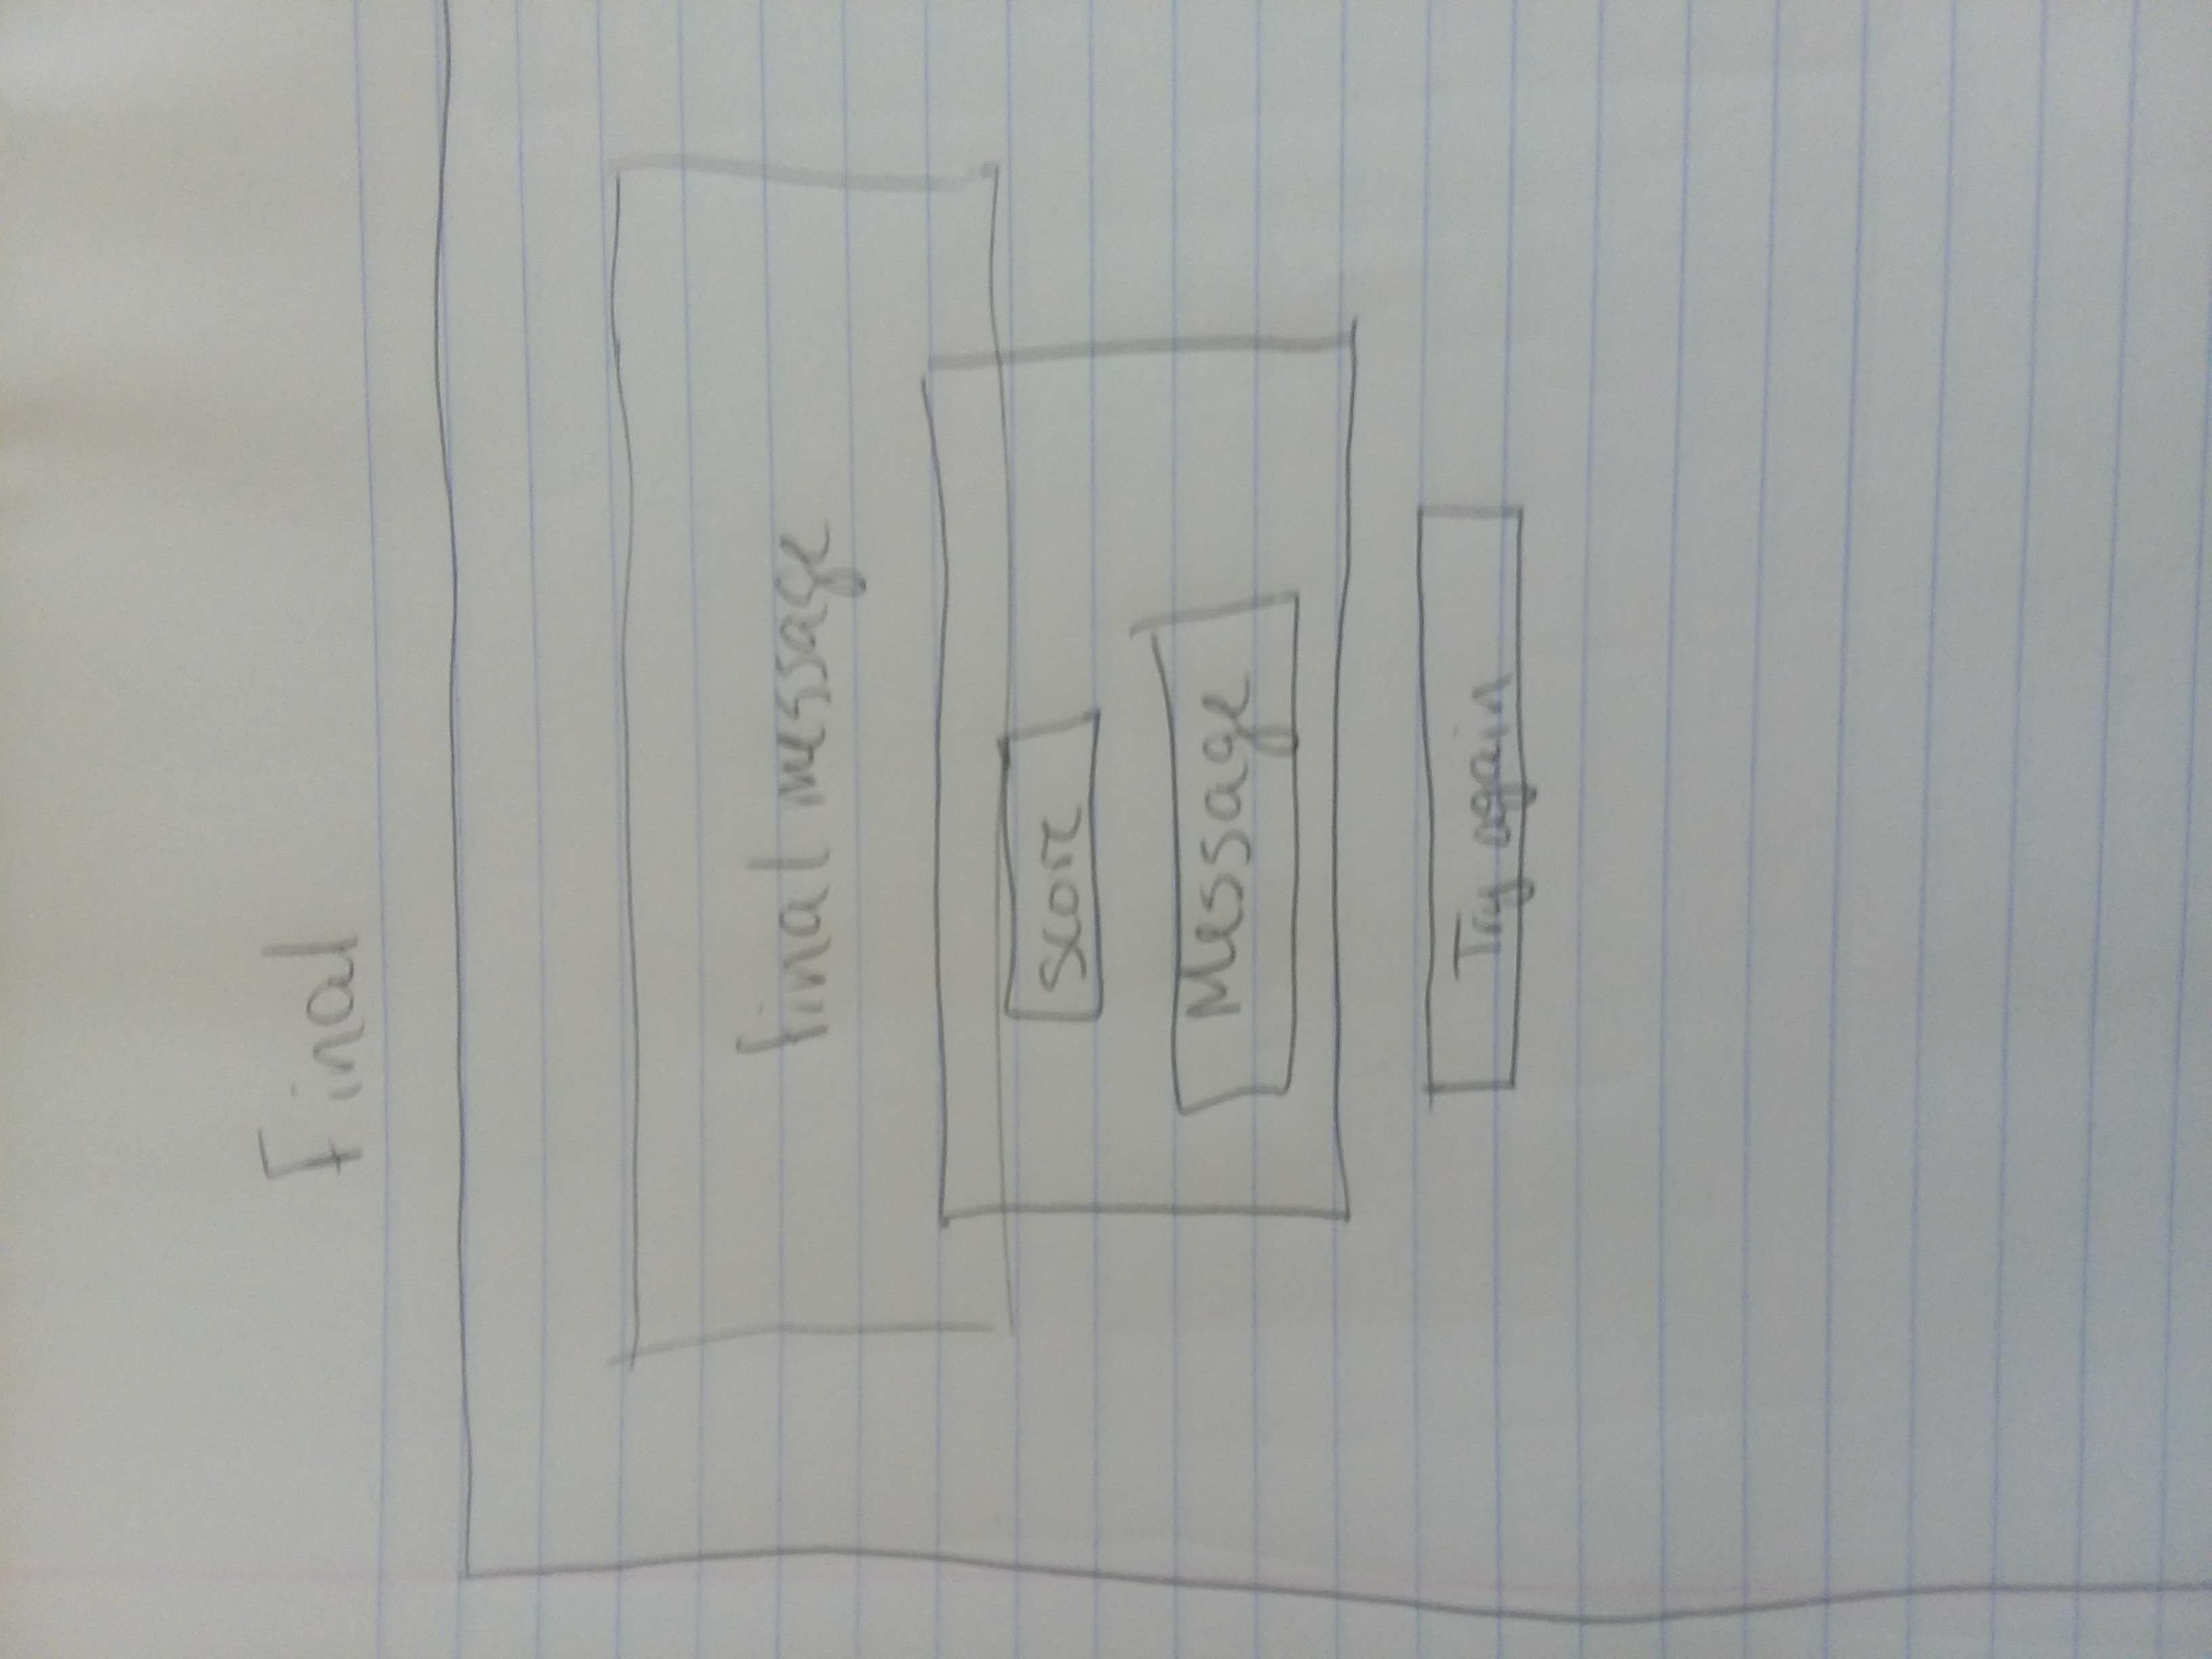 Final
Final message
score
Message
Try again